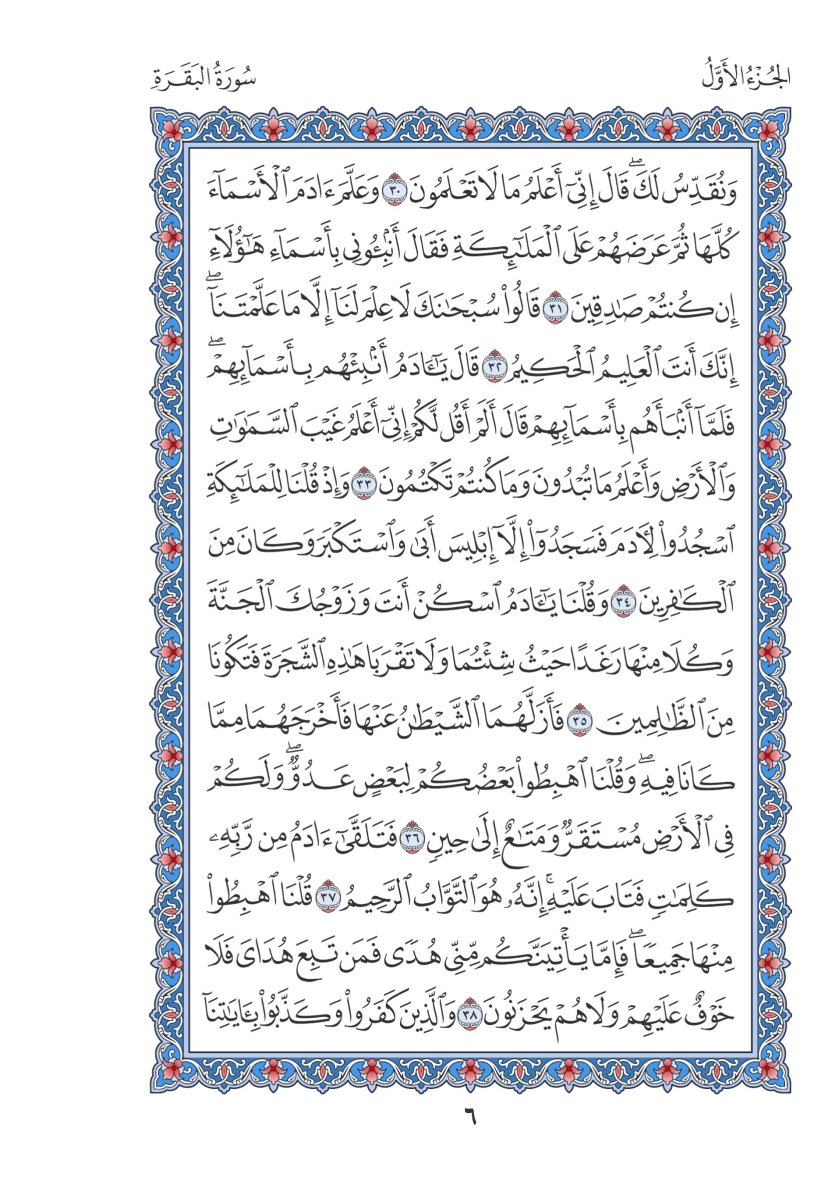 الجُزْءُ الأَوَّلُ
سُورَةُ البَقَرَةِ
وَنُقَدِّسُ لَكَۖ قَالَ إِنِّيٓ أَعۡلَمُ مَا لَا تَعۡلَمُونَ ٣٠ وَعَلَّمَ ءَادَمَ ٱلۡأَسۡمَآءَ
كُلَّهَا ثُمَّ عَرَضَهُمۡ عَلَى ٱلۡمَلَٰٓئِكَةِ فَقَالَ أَنۢبِـُٔونِي بِأَسۡمَآءِ هَٰٓؤُلَآءِ
إِن كُنتُمۡ صَٰدِقِينَ ٣١ قَالُواْ سُبۡحَٰنَكَ لَا عِلۡمَ لَنَآ إِلَّا مَا عَلَّمۡتَنَآۖ
إِنَّكَ أَنتَ ٱلۡعَلِيمُ ٱلۡحَكِيمُ ٣٢ قَالَ يَٰٓـَٔادَمُ أَنۢبِئۡهُم بِأَسۡمَآئِهِمۡۖ
فَلَمَّآ أَنۢبَأَهُم بِأَسۡمَآئِهِمۡ قَالَ أَلَمۡ أَقُل لَّكُمۡ إِنِّيٓ أَعۡلَمُ غَيۡبَ ٱلسَّمَٰوَٰتِ
وَٱلۡأَرۡضِ وَأَعۡلَمُ مَا تُبۡدُونَ وَمَا كُنتُمۡ تَكۡتُمُونَ ٣٣ وَإِذۡ قُلۡنَا لِلۡمَلَٰٓئِكَةِ
ٱسۡجُدُواْ لِأٓدَمَ فَسَجَدُوٓاْ إِلَّآ إِبۡلِيسَ أَبَىٰ وَٱسۡتَكۡبَرَ وَكَانَ مِنَ
ٱلۡكَٰفِرِينَ ٣٤ وَقُلۡنَا يَٰٓـَٔادَمُ ٱسۡكُنۡ أَنتَ وَزَوۡجُكَ ٱلۡجَنَّةَ
وَكُلَا مِنۡهَا رَغَدًا حَيۡثُ شِئۡتُمَا وَلَا تَقۡرَبَا هَٰذِهِ ٱلشَّجَرَةَ فَتَكُونَا
مِنَ ٱلظَّٰلِمِينَ ٣٥ فَأَزَلَّهُمَا ٱلشَّيۡطَٰنُ عَنۡهَا فَأَخۡرَجَهُمَا مِمَّا
كَانَا فِيهِۖ وَقُلۡنَا ٱهۡبِطُواْ بَعۡضُكُمۡ لِبَعۡضٍ عَدُوّٞۖ وَلَكُمۡ
فِي ٱلۡأَرۡضِ مُسۡتَقَرّٞ وَمَتَٰعٌ إِلَىٰ حِينٖ ٣٦ فَتَلَقَّىٰٓ ءَادَمُ مِن رَّبِّهِۦ
كَلِمَٰتٖ فَتَابَ عَلَيۡهِۚ إِنَّهُۥ هُوَ ٱلتَّوَّابُ ٱلرَّحِيمُ ٣٧ قُلۡنَا ٱهۡبِطُواْ
مِنۡهَا جَمِيعٗاۖ فَإِمَّا يَأۡتِيَنَّكُم مِّنِّي هُدٗى فَمَن تَبِعَ هُدَايَ فَلَا
خَوۡفٌ عَلَيۡهِمۡ وَلَا هُمۡ يَحۡزَنُونَ ٣٨ وَٱلَّذِينَ كَفَرُواْ وَكَذَّبُواْ بِـَٔايَٰتِنَآ
٦